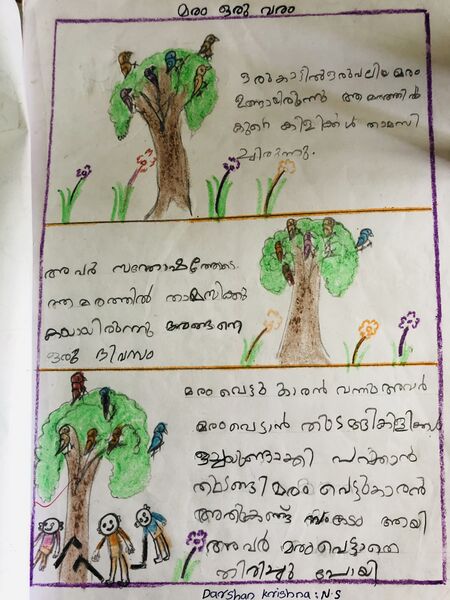 മരം ഒരു വരം
ഒരുകാട്ടിൽഒരുവലിയ മരം
ഉണ്ടായിരുന്നു ആ മരത്തിൽ
കുറെ കിളികൾ താമസി
ച്ചിരുന്നു.
അവർ സന്തോഷത്തോടെ
ആ മരത്തിൽ താമസിക്കു
കയായിരുന്നു അങ്ങനെ
ഒരു ദിവസം
മരംവെട്ടു കാരൻ വന്നു അവർ
മരംവെട്ടാൻ തുടങ്ങി കിളികൾ
ഒച്ചയുണ്ടാക്കി പറക്കാൻ
തുടങ്ങി മരം വെട്ടുകാരൻ
അതുകണ്ട് സങ്കടം ആയി
അവർ മരംവെട്ടാതെ
തിരിച്ചു പോയി
Darshan Krishna: N.S